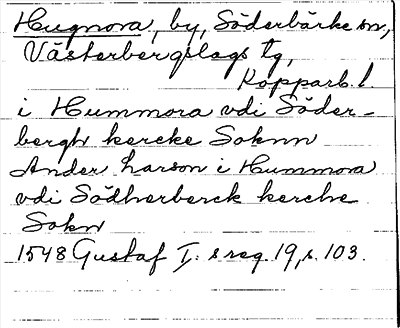 Hugnora, by, Söderbärke sn,
Västerbergslags tg,
Kopparb. l.
i Hummora vdi Söder-
bergh kercke Soknn
Ander Larson i Hummora
vdi Södherberck kerche
Sokn
1548 Gustaf I: s reg. 19, s. 103.